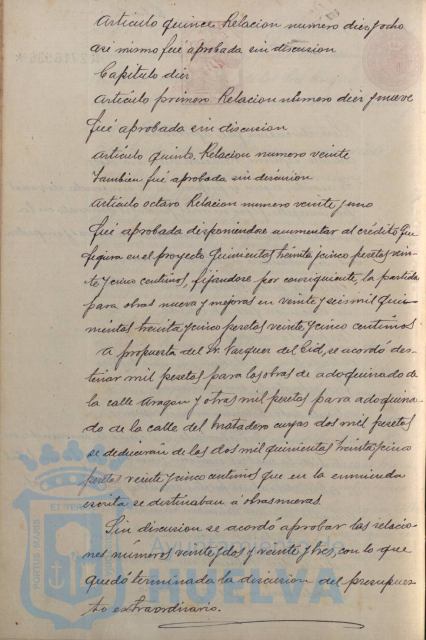 Articulo quince Relacion numero diez y ocho
asi mismo fué aprobada sin discusion
Capitulo diez
Articulo primero Relacion número diez y nueve
fué aprobada sin discusion
Articulo quinto. Relacion numero veinte
tambien fué aprobada sin discusion
Articulo octavo Relacion numero veinte y uno
fué aprobada disponiendose aumentar al crédito que
figura en el proyecto quinientas treinta y cinco pesetas vein-
te y cinco centimos, fijandose por consiguiente, la partida
para obras nuevas y mejoras en veinte y seis mil quin-
mientas treinta y cinco pesetas veinte y cinco centimos
A propuesta del Sr. Vazquez del Cid, se acordó des-
tinar mil pesetas para las obras de adoquinado de
la calle Aragon y otras mil pesetas para adoquina-
do de la calle del Matadero cuyas dos mil pesetas
se deduciran de las dos mil quinientas treinta y cinco
pesetas veinte y cinco centimos que en la enmienda
escrita se destinaban á obras nuevas.
Sin discusion se acordó aprobar las relacio-
nes números veinte y dos y veinte y tres, con lo que
quedó terminada la discusion del presupues-
to extraordinario.
PORTUS MARIS
Ayuntamiento de
HUELVA